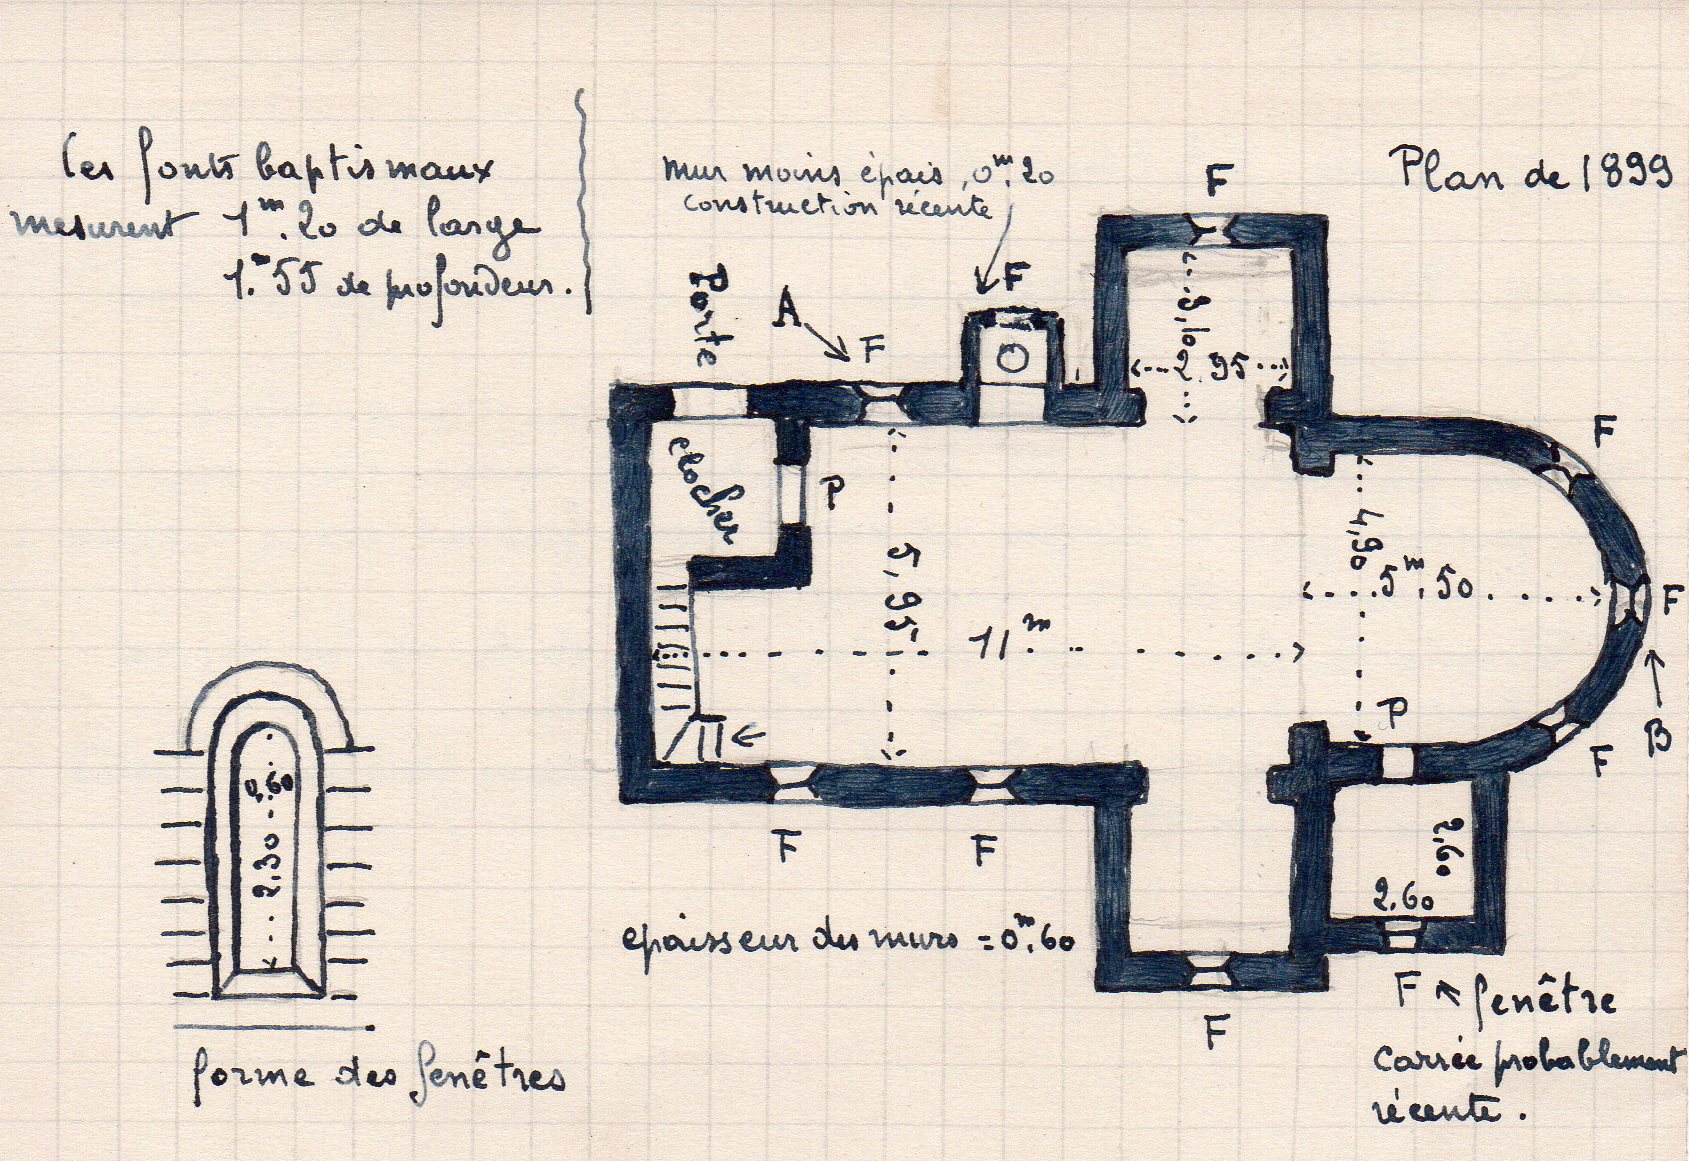 les fonts baptismaux
mesurent 1m.20 de large
1.m55 de profondeur.
mur moins épais, 0m.20
construction récente
Plan de 1899
F
F
Porte
A
F
3,10
2.95
clocher
P
F
5,95
4,90
5m.50
F
11m
P
B
F
F
F
2,60
2.60
epaisseur des murs = 0m.60
F
F fenêtre
carrée probablement
récente.
0,60
2,30
forme des fenêtres